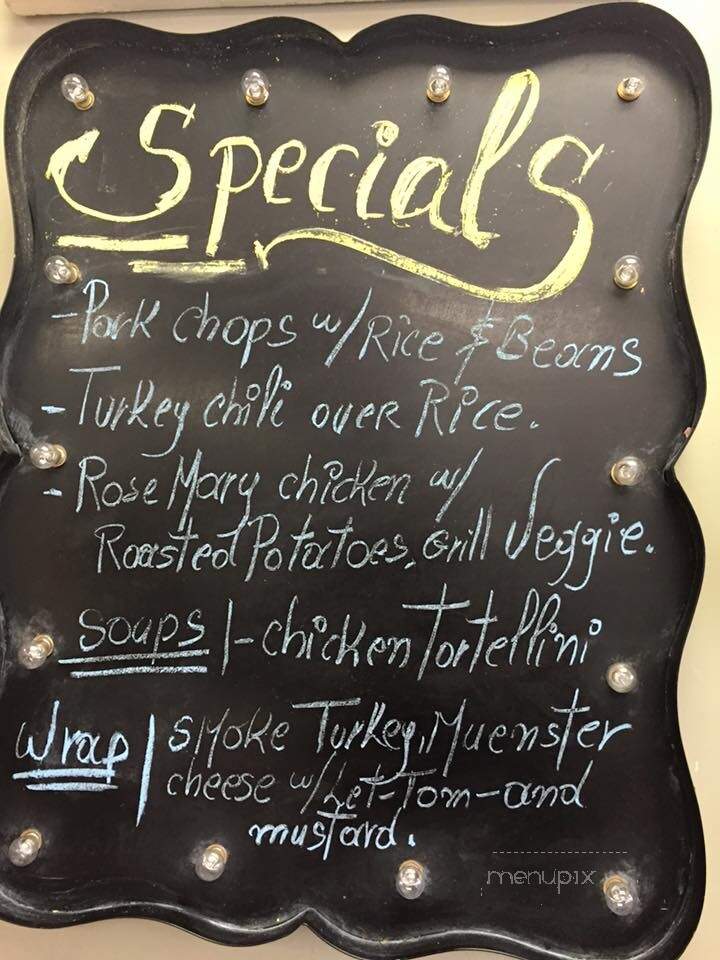 Specials
- Pork chops w/ Rice & Beans
- Turkey chili over Rice.
- RoseMary chicken w/
Roasted Potatoes, Grill Veggie.
Soups | - chicken Tortellini
Wrap | SMoke Turkey, Muenster
cheese w/ Let-Tom-and
mustard.
menupix